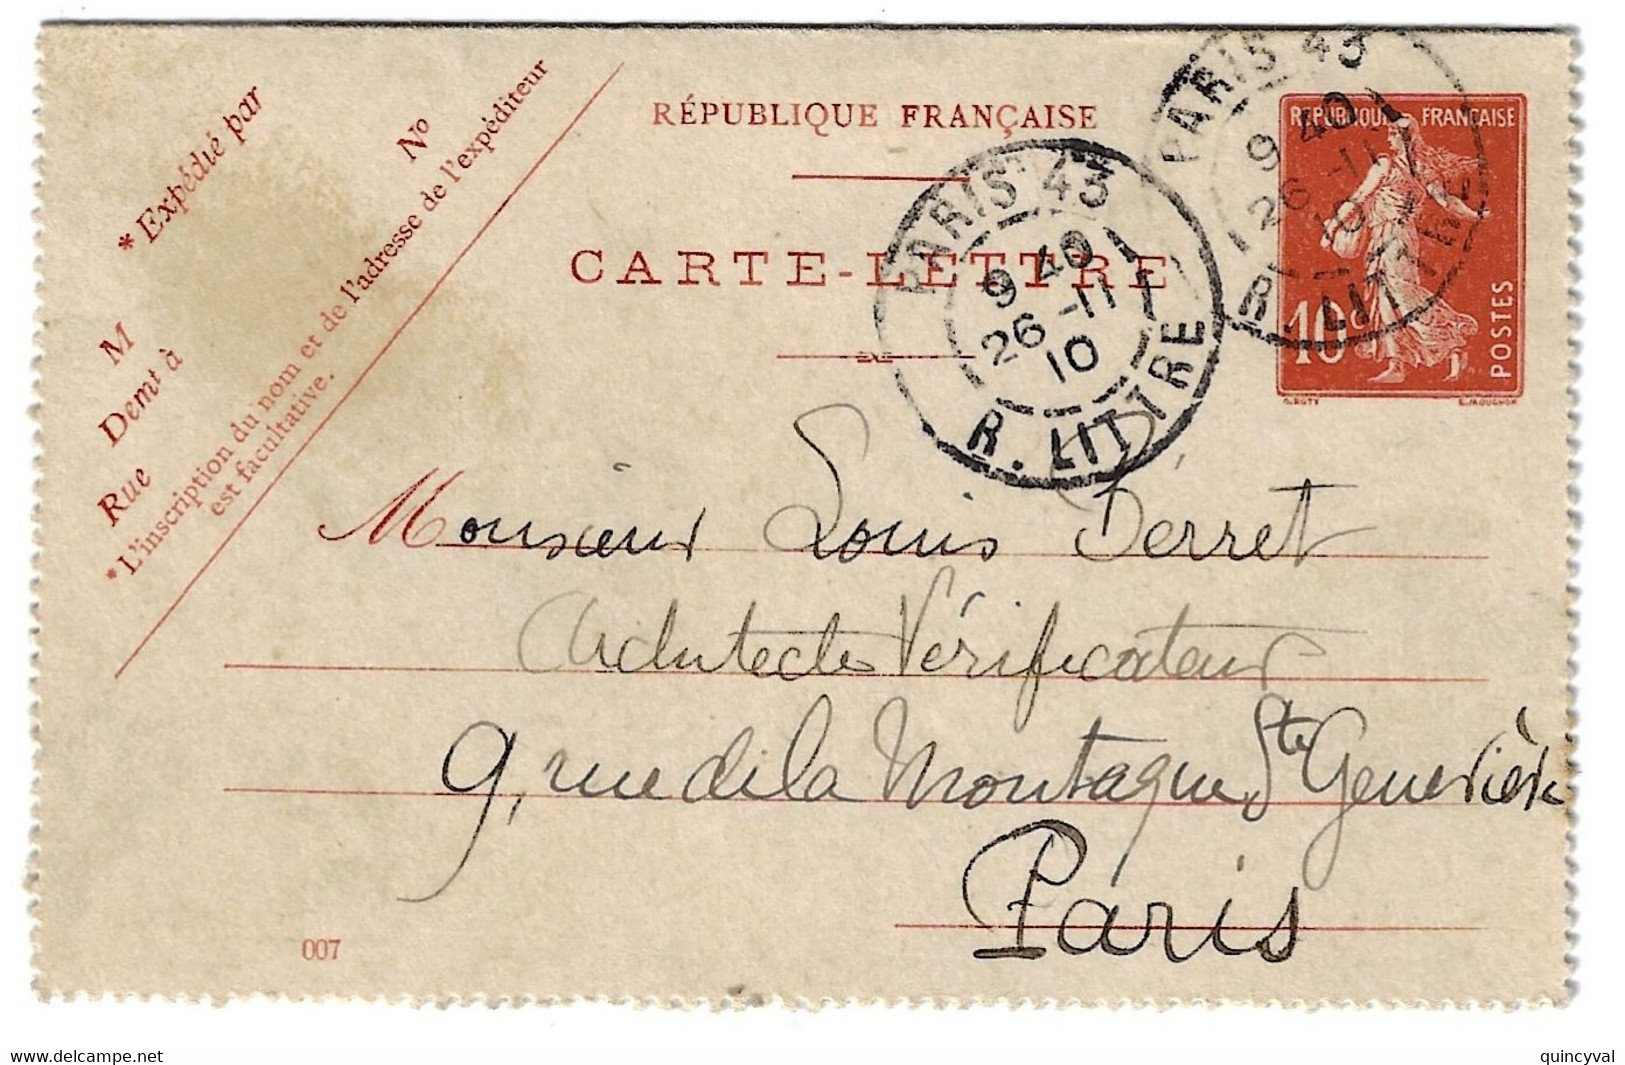 * Expédié par
No
M
Demt à
Rue
* L'inscription du nom et de l'adresse de l'expéditeur
est facultative.
RÉPUBLIQUE FRANÇAISE
CARTE-LETTRE
PARIS 43
9 40
26 -11
10
R. LITTRE
PARIS 43
9 40
26 -11
10
R. LITTRE
REPUBLIQUE FRANÇAISE
10c
POSTES
O. ROTY
E. MOUCHON
Monsieur Louis Derret
Architecte Vérificateur
9, rue de la Montagne Ste Geneviève
Paris
007
delcampe.net
quincyval